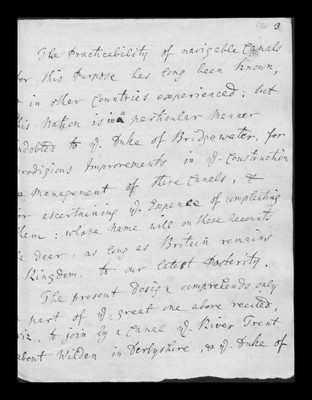 3
The Practicability of navigable Canals
for this Purpose has long been known,
in other Countries experienced; but
his Nation is in a particular Manner
ndebted to ye. Duke of Bridgewater, for
rodigious Improvements in ye. Construction
Management of these Canals, &
or ascertaining ye. Expence of compleating
them: whose Name will on these accounts
e dear, as long as Britain remains
Kingdom, to our latest Posterity.
The present Design comprehends only
part of ye. great one above recited,
viz. to join by a Canal ye. River Trent
about Wilden in Derbyshire, & ye. Duke of